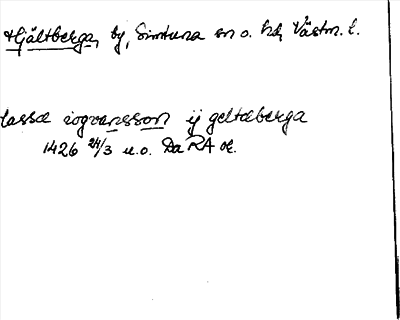 Hjältberga, by, Simtuna sn o. hd, Västm. l.
lassæ iogvansson ij geltæberga
1426 24/3 u.o. Da RA or.